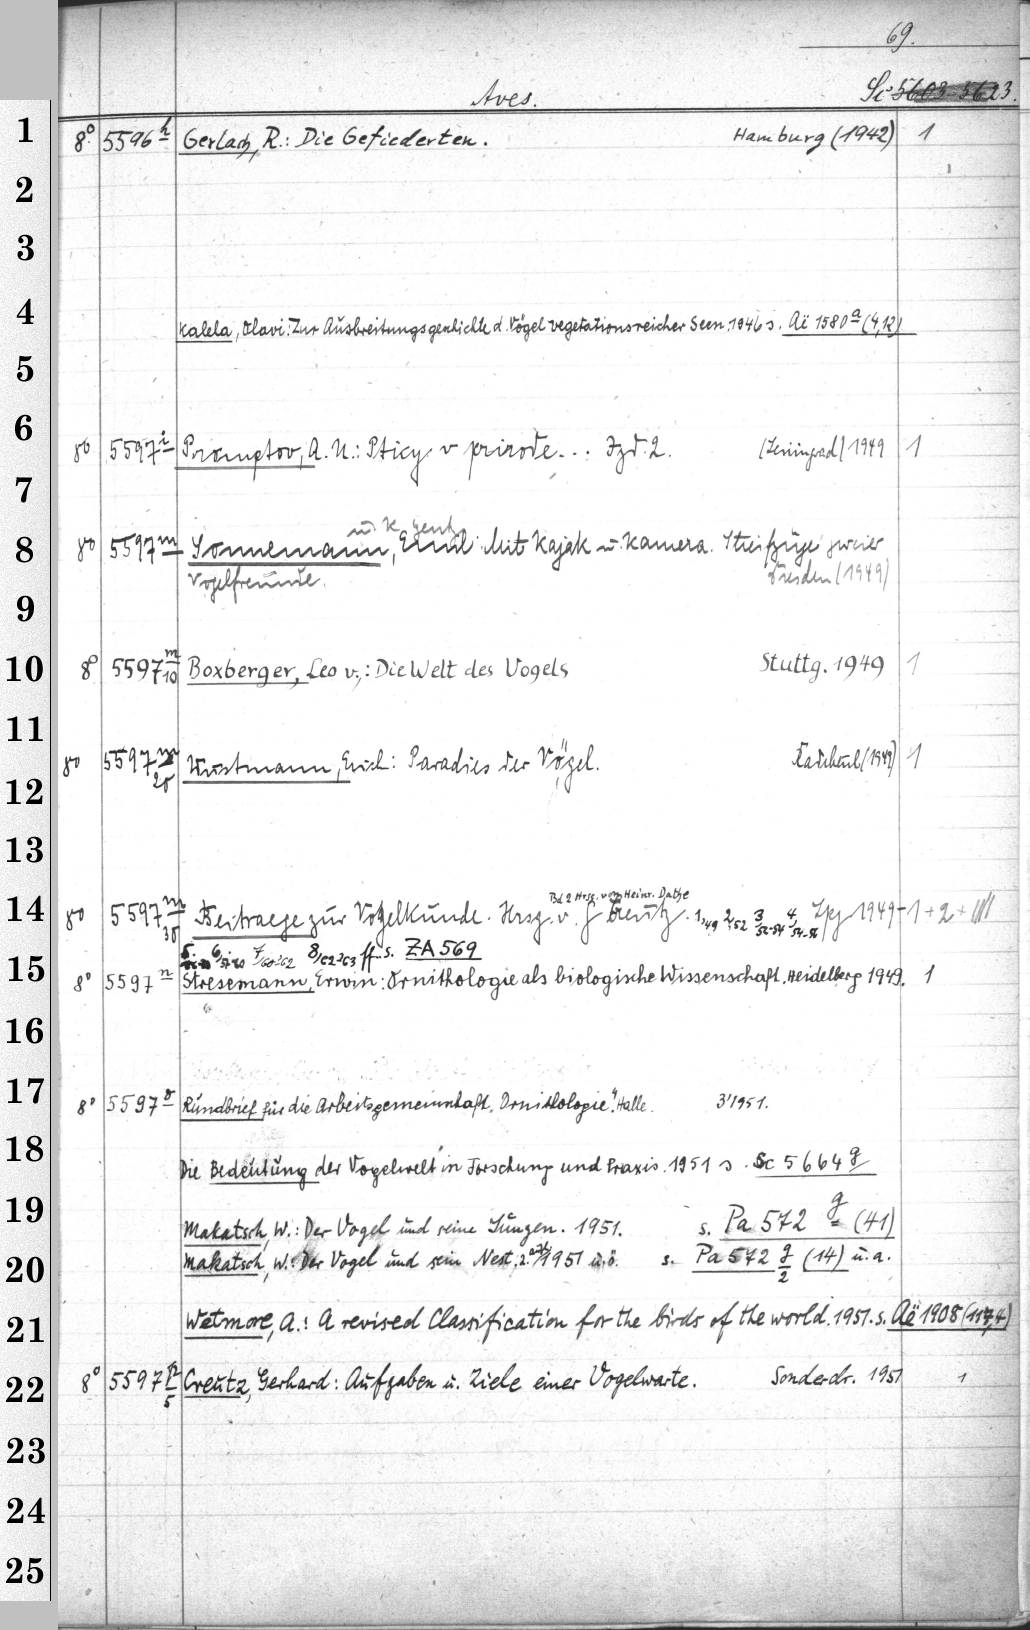 69.
Aves. Sc 5603-5623.
1 8° 5596 h Gerlach, R.: Die Gefiederten. Hamburg (1942) 1
2
3
4 Kalela, Olavi: Zur Ausbreitungsgeschichte d. Vögel vegetationsreicher Seen. 1946 s. Aë 1580 a (4,12)
5
6 8° 5597 i Promptov, A. N.: Pticy v prirode... Izd. 2. (Leningrad) 1949 1
7
u. K. Gentz
8 8° 5597 m Sonnemann, Emil: Mit Kajak u. Kamera. Streifzüge zweier
Vogelfreunde. Dresden (1949)
9
10 8° 5597 m/10 Boxberger, Leo v.: Die Welt des Vogels Stuttg. 1949 1
11
8° 5597 m/20 Wustmann, Erich: Paradies der Vögel. Radebeul (1949) 1
12
13
Bd 2 Hrsg. von Heinr. Dathe
14 8° 5597 m/30 Beitraege zur Vogelkunde. Hrsg. v. G Creutz. 1,49 2,52 3 52-54 4, 54-56 Lpz 1949- 1 + 2 + IIII
5 6 7/60-62 8/62-63 ff. s. ZA 569
15 8° 5597 n Stresemann, Erwin: Ornithologie als biologische Wissenschaft. Heidelberg 1949. 1
16
17 8° 5597 o Rundbrief für die Arbeitsgemeinschaft „Ornithologie". Halle. 3'1951.
18 Die Bedeutung der Vogelwelt in Forschung und Praxis. 1951 s. Sc 5664 g
19 Makatsch, W.: Der Vogel und seine Jungen. 1951. s. Pa 572 g (41)
20 Makatsch, W.: Der Vogel und sein Nest. 2. Aufl. 1951 u. ö. s. Pa 572 g/2 (14) u. a.
21 Wetmore, A.: A revised Classification for the birds of the world. 1951. s. Aë 1908 (117,4)
22 8° 5597 p/5 Creutz, Gerhard: Aufgaben u. Ziele einer Vogelwarte. Sonderdr. 1951 1
23
24
25